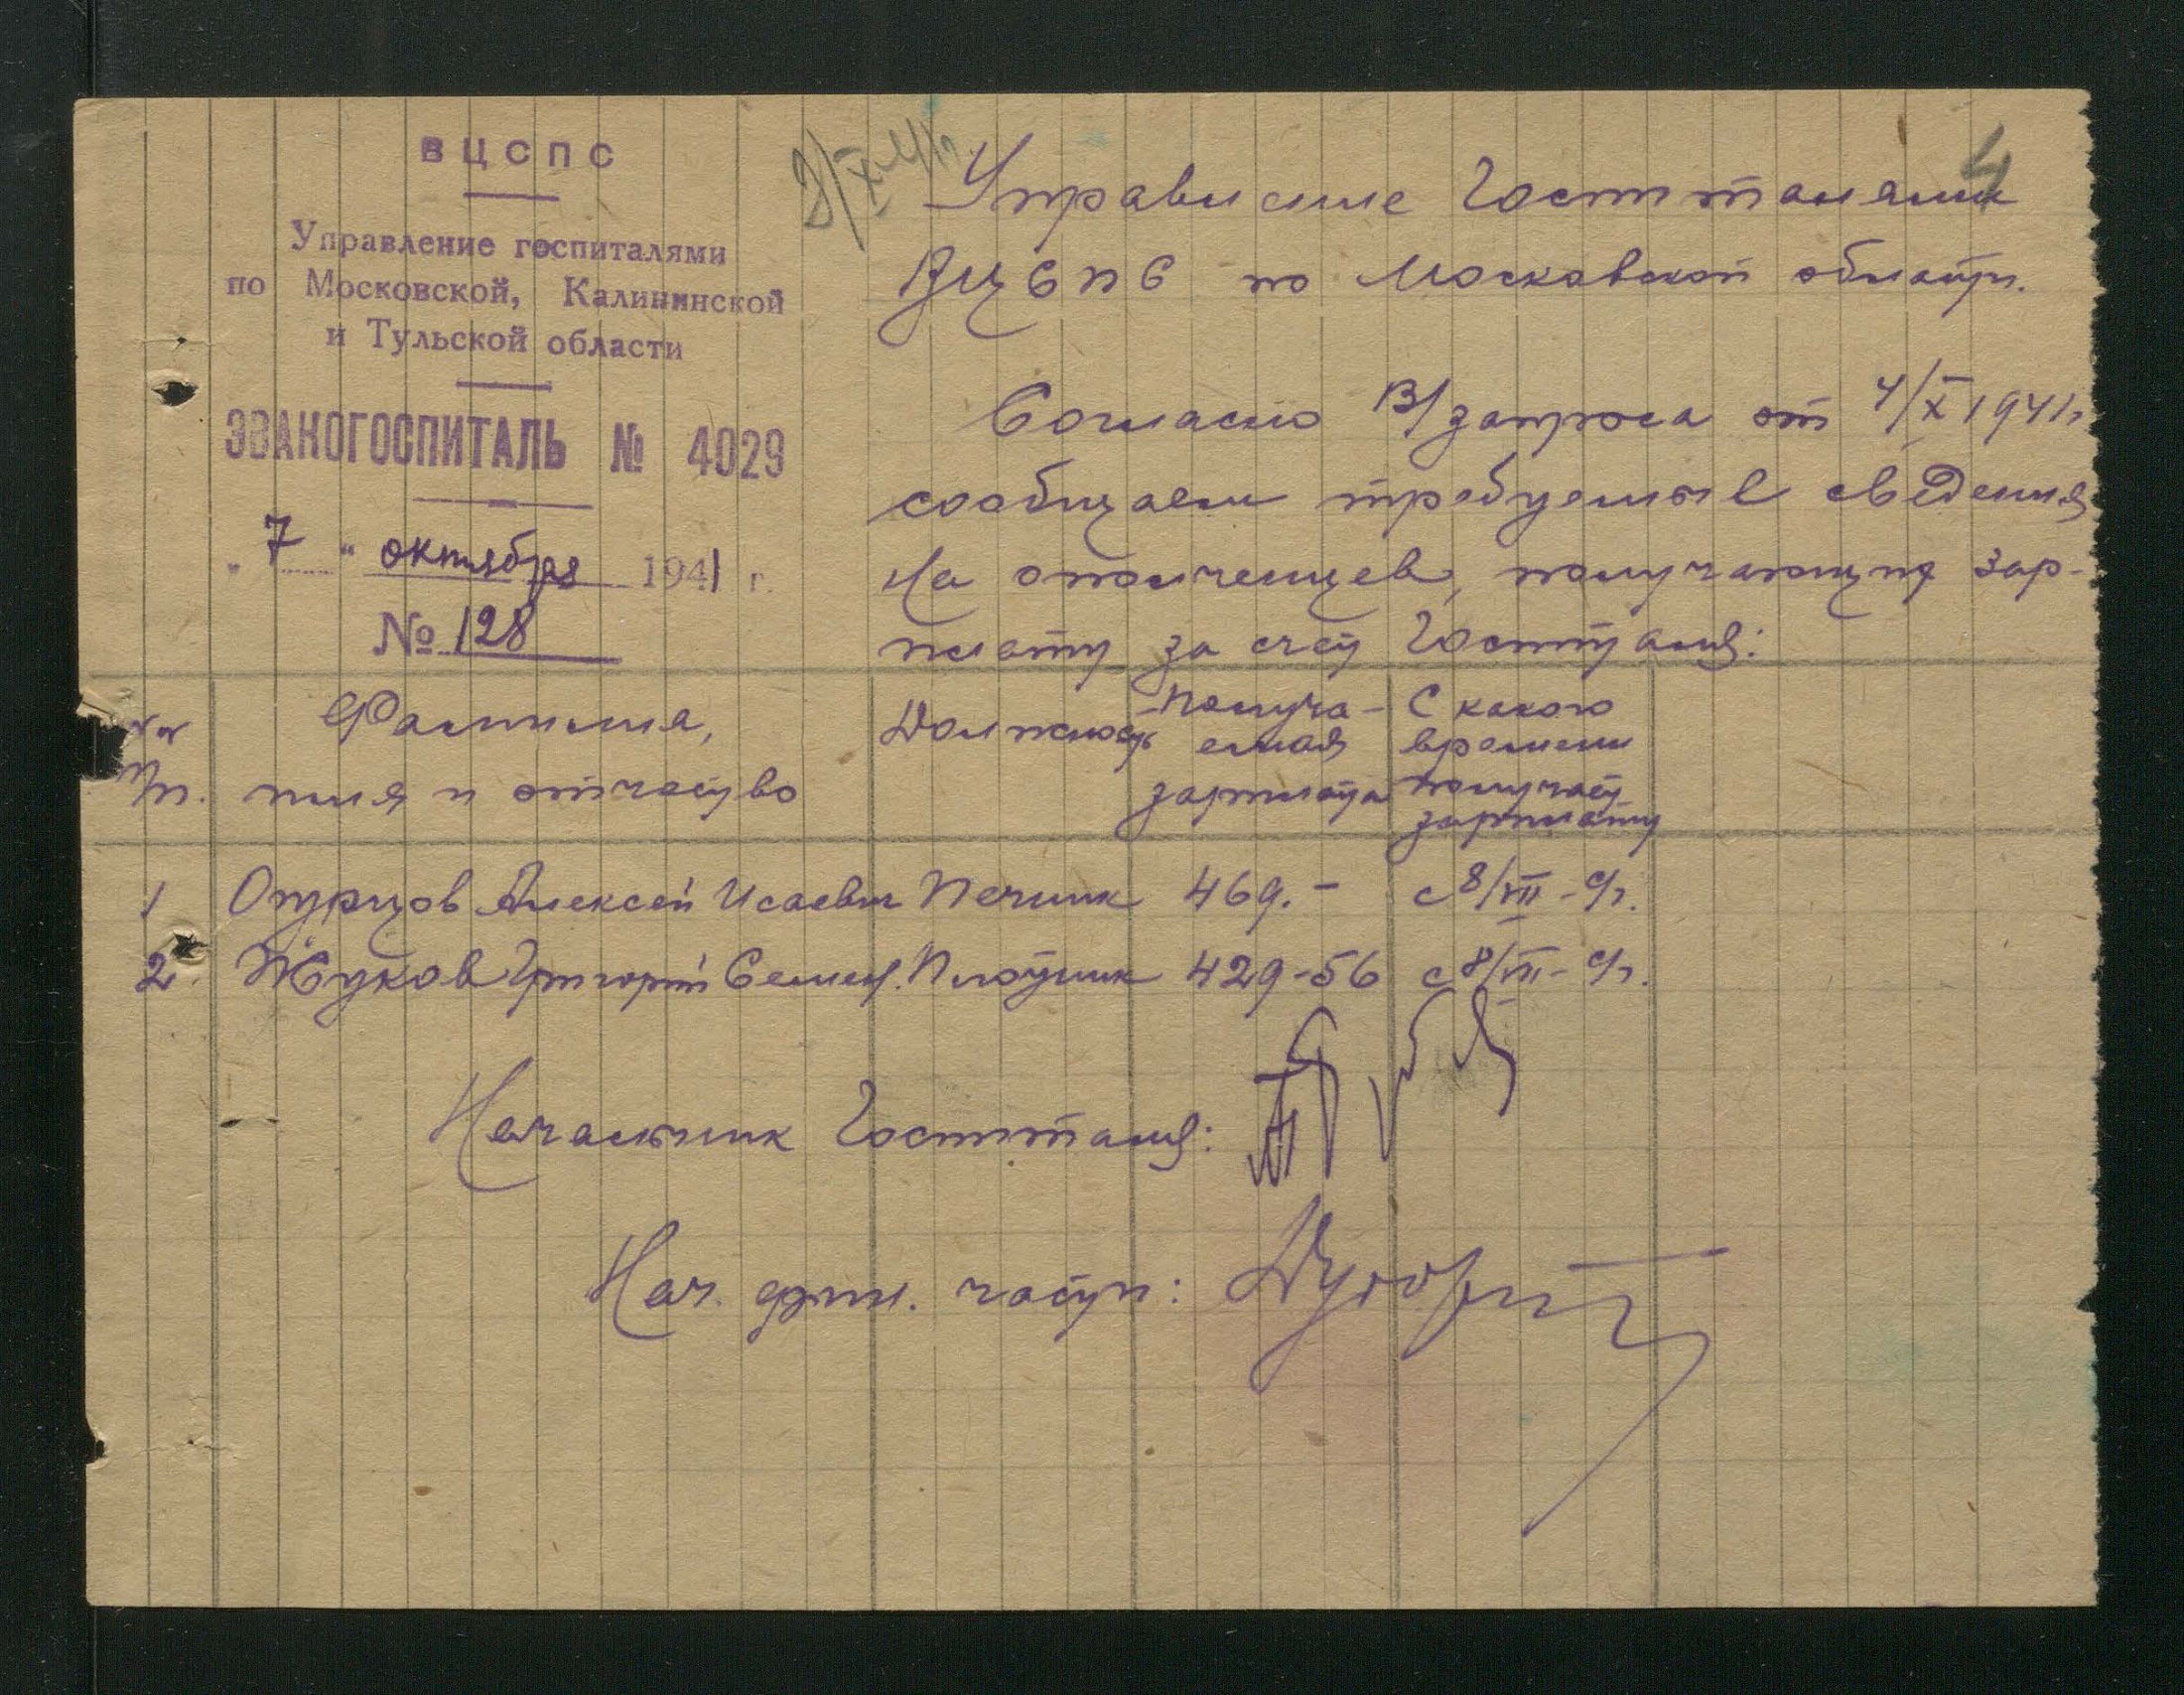 ВЦСПС
Управление госпиталями
по Московской, Калининской
и Тульской области
ЭВАКОГОСПИТАЛЬ № 4029
"7" октября 1941 г.
№ 128
4
Управление Госпиталями
ВЦСПС по Московской области.
Согласно В/запроса от 4/X 1941г
сообщаем требуемые сведения
на ополченцев, получающих зар-
плату за счет Госпиталя:
№№ Фамилия, Должность Получа- С какого
емая времени
п. имя и отчество зарплата получает
зарплату
1 Огурцов Алексей Исаевич Печник 469.- с 8/VII-с/г.
2. Жуков Григорий Семен. Плотник 429-56 с 8/VII-с/г.
Начальник Госпиталя:
Нач. фин. части: